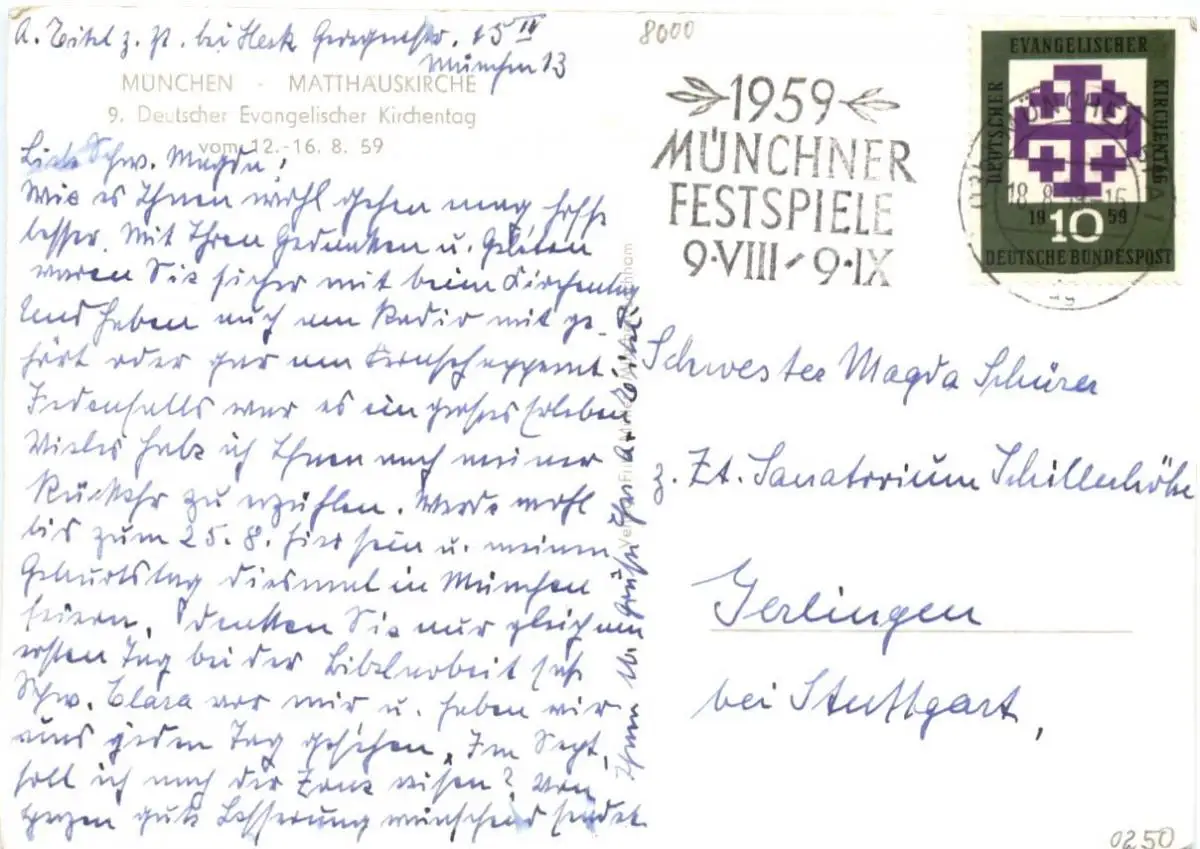 A. Titel z. Zt. bei Heck 15 IV
München 13
MÜNCHEN - MATTHÄUSKIRCHE
9. Deutscher Evangelischer Kirchentag
vom 12.-16. 8. 59
Liebe Schw. Magda!
Wie es Ihnen wohl gehen mag hoffe
besser. Mit Ihren Gedanken u. Gebeten
waren Sie sicher mit beim Kirchentag
Und haben auch am Radio mit ge-
hört oder gar am Fernsehapparat.
Jedenfalls war es ein großes Erleben
Vieles habe ich Ihnen nach meiner
Rückkehr zu erzählen. Werde wohl
bis zum 25. 8. hier sein u. meinen
Geburtstag diesmal in München
feiern. denken Sie nur gleich am
ersten Tag bei der Bibelarbeit saß
Schw. Clara vor mir u. haben wir
uns jeden Tag gesehen. Im Sept.
soll ich nach der Zone reisen? Von
Herzen gute Besserung wünschend sendet
Ihnen Grüße Ihre A. Titel
8000
1959
MÜNCHNER
FESTSPIELE
9·VIII - 9·IX
DEUTSCHER
EVANGELISCHER
KIRCHENTAG
10
DEUTSCHE BUNDESPOST
MÜNCHEN
18. 8.
1959
Schwester Magda Schürer
z. Zt. Sanatorium Schillerhöhe
Gerlingen
bei Stuttgart,
0250